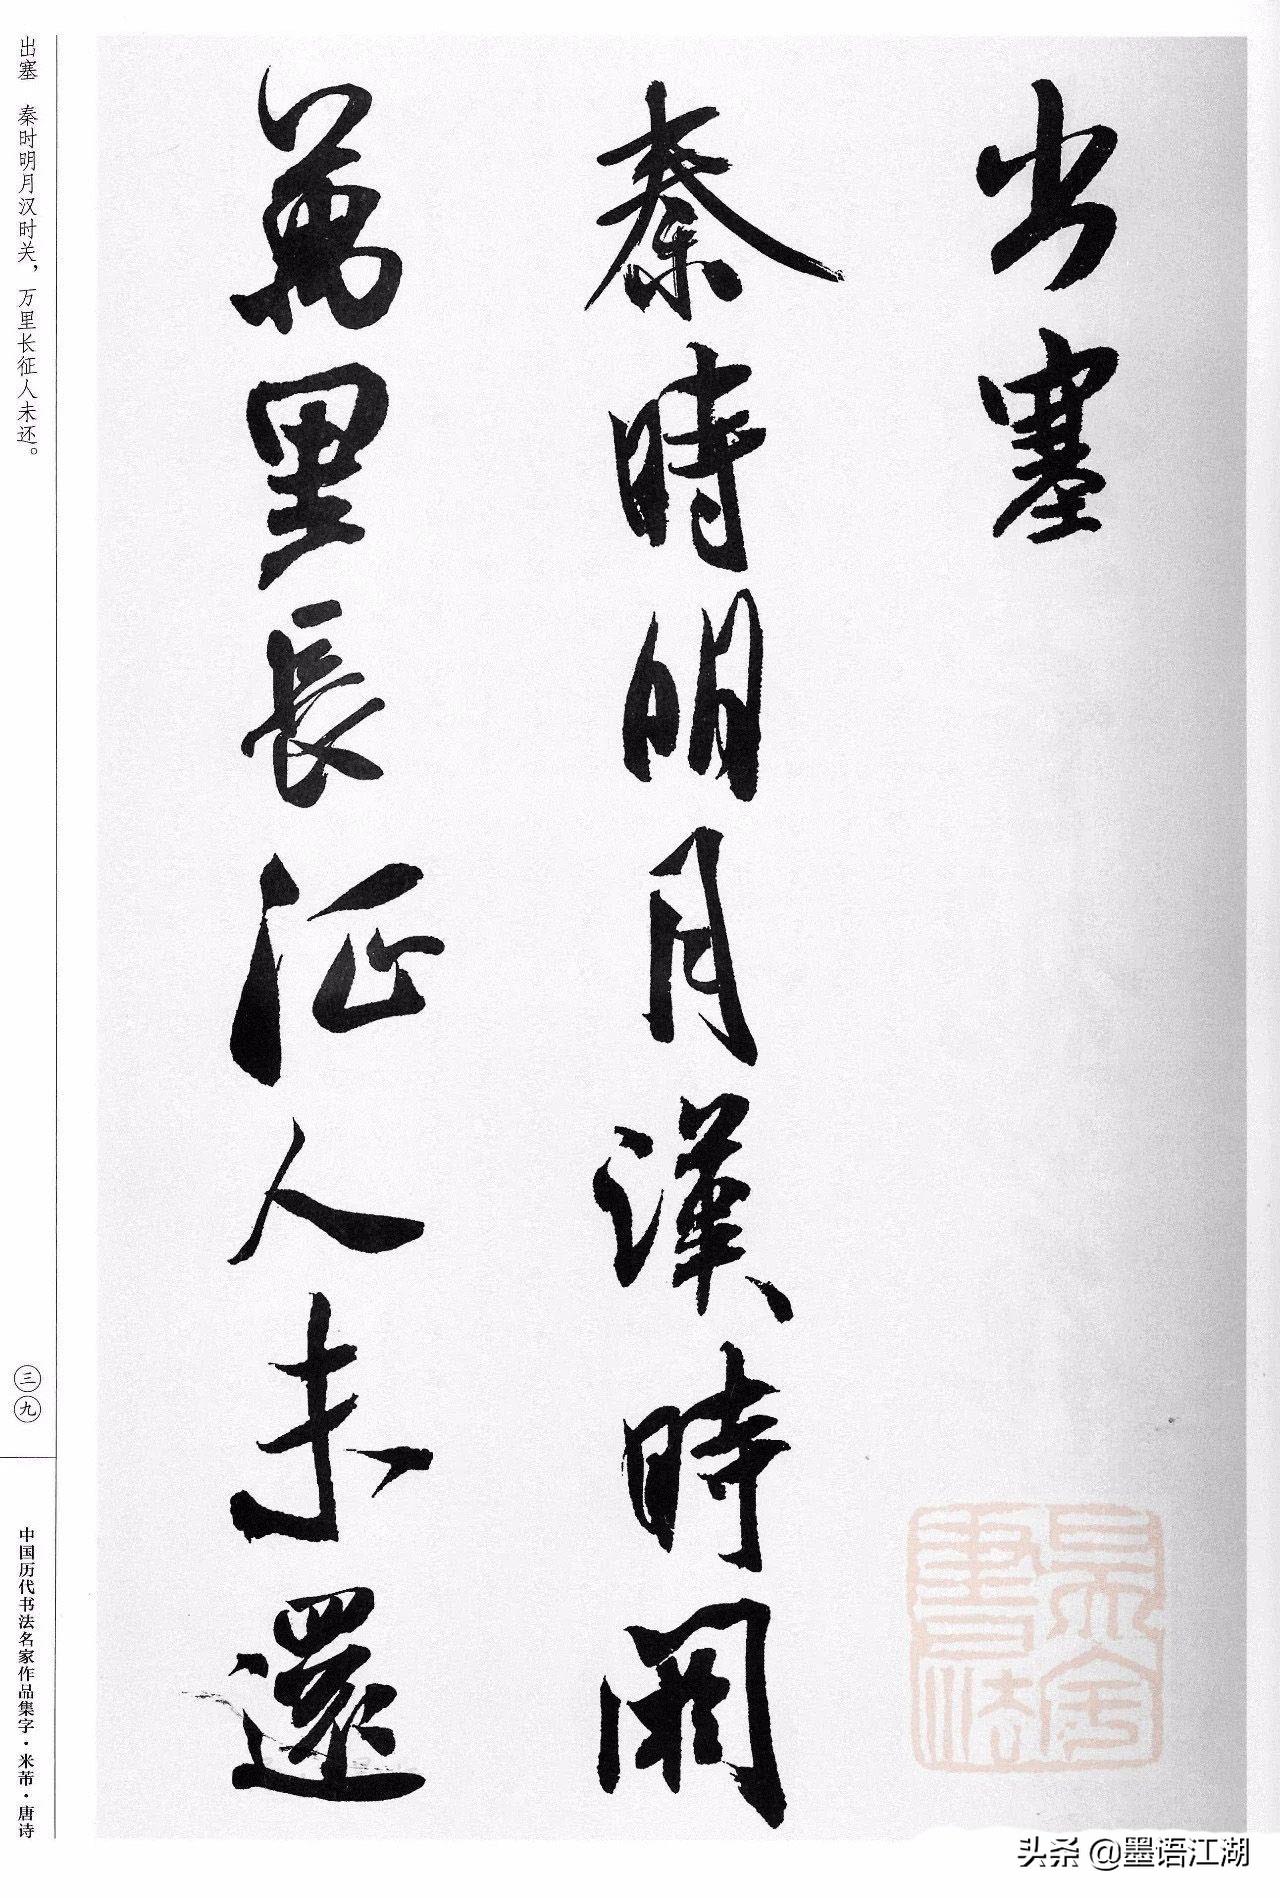 出塞
秦時明月漢時關
萬里長征人未還
出塞　秦时明月汉时关，万里长征人未还。
三九
中国历代书法名家作品集字·米芾·唐诗
头条 @墨语江湖